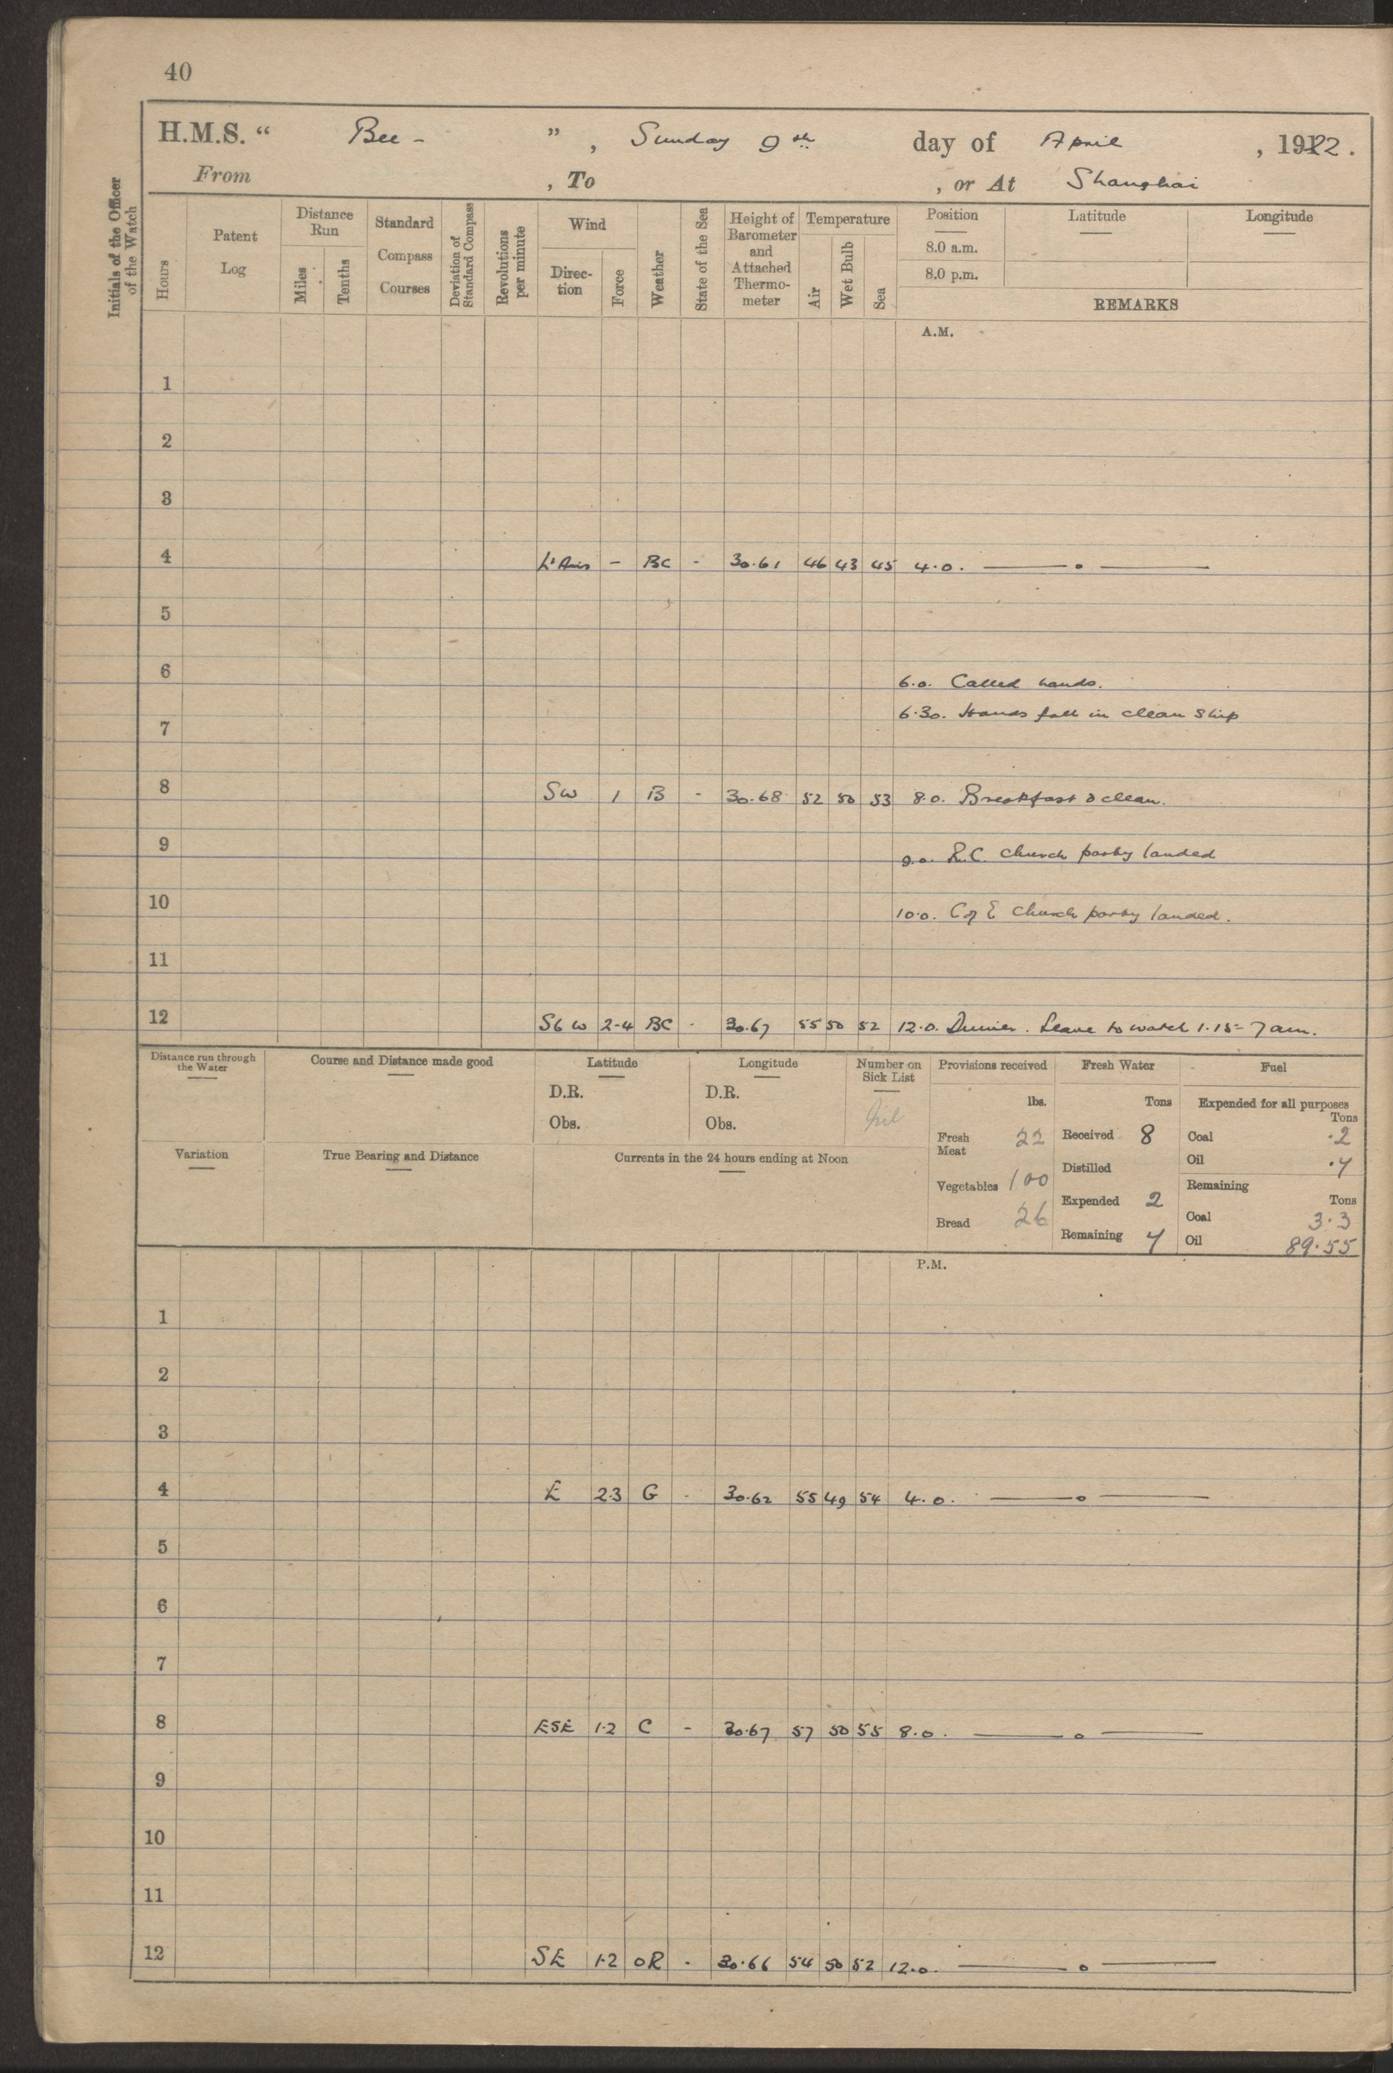 40
H.M.S. “ Bee - ” , Sunday 9th day of April , 1922 .
From , To , or At Shanghai
Initials of the Officer of the Watch
Hours
Patent Log
Distance Run
Miles
Tenths
Standard Compass Courses
Deviation of Standard Compass
Revolutions per minute
Wind
Direc-tion
Force
Weather
State of the Sea
Height of Barometer and Attached Thermo-meter
Temperature
Air
Wet Bulb
Sea
Position Latitude Longitude
8.0 a.m.
8.0 p.m.
REMARKS
A.M.
1
2
3
4 - BC - 30.61 46 43 45 4.0. —— o ——
5
6 6.0. Called hands.
6.30. Hands fall in clean ship
7
8 SW 1 B - 30.68 52 50 53 8.0. Breakfast & clean.
9 9.0. R.C. church party landed
10 10.0. C of E church party landed.
11
12 SbW 2-4 BC - 30.67 55 50 52 12.0. Dinner. Leave to watch 1.15 - 7 am.
Distance run through the Water
Course and Distance made good
Latitude
D.R.
Obs.
Longitude
D.R.
Obs.
Number on Sick List
Nil
Provisions received
lbs.
Fresh Meat 22
Vegetables 100
Bread 26
Fresh Water
Tons
Received 8
Distilled
Expended 2
Remaining 7
Fuel
Expended for all purposes
Tons
Coal .2
Oil .7
Remaining
Tons
Coal 3.3
Oil 89.55
Variation
True Bearing and Distance
Currents in the 24 hours ending at Noon
P.M.
1
2
3
4 E 2.3 G - 30.62 55 49 54 4.0. —— o ——
5
6
7
8 ESE 1.2 C - 30.67 57 50 55 8.0. —— o ——
9
10
11
12 SE 1.2 OR - 30.66 54 50 52 12.0. —— o ——